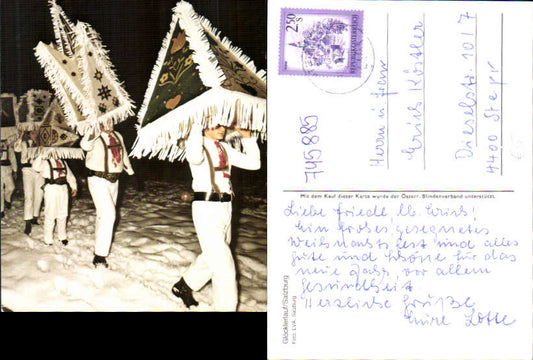 2.50
S
REPUBLIK ÖSTERREICH
745885
Herrn u. Frau
Erich Köstler
Dieselstr. 10/7
4400 Steyr
Mit dem Kauf dieser Karte wurde der Österr. Blindenverband unterstützt.
Liebe Friedl lb. Erich!
Ein frohes gesegnetes
Weihnachtsfest und alles
gute und schöne für das
neue Jahr, vor allem
Gesundheit
Herzliche Grüße
Eure Lotte
Glöcklerlauf/Salzburg
Foto: LVA, Salzburg